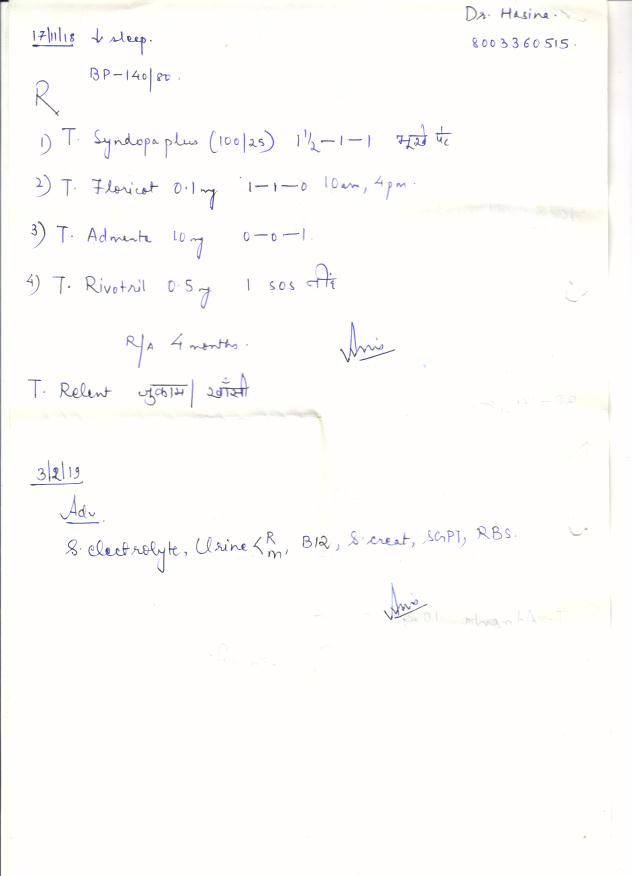 Dr. Hasina.
8003360515.
17/11/18 ↓ sleep.
BP-140/80.
R
1) T. Syndopa plus (100/25) 1½-1-1 भूखे पेट
2) T. Floricot 0.1mg 1-1-0 10am, 4pm.
3) T. Admenta 10mg 0-0-1.
4) T. Rivotril 0.5mg 1 SOS नींद
R/A 4 months.
T. Relent जुकाम/खाँसी
3/2/19
Adv.
S. electrolyte, Urine < R M, B12, S. creat, SGPT, RBS.